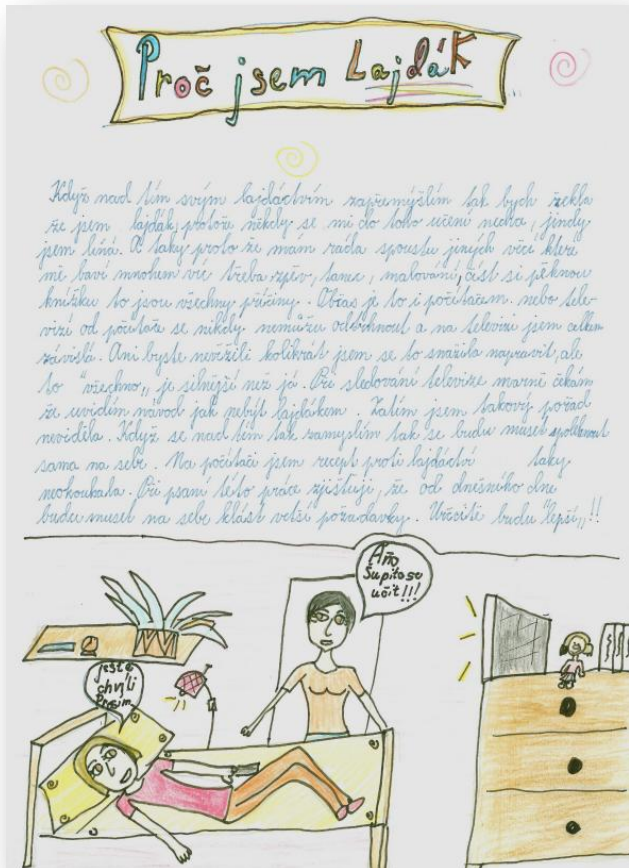 Proč jsem Lajdák
Když nad tím svým lajdáctvím zapřemýšlím tak bych řekla
že jsem lajdák, protože někdy se mi do toho učení nechce, jindy
jsem líná. A taky proto že mám ráda spoustu jiných věcí které
mě baví mnohem víc třeba zpěv, tanec, malování, číst si pěknou
knížku to jsou všechny příčiny. Občas je to i počítačem nebo tele-
vizí od počítače se nikdy nemůžu odtrhnout a na televizi jsem celkem
závislá. Ani byste nevěřili kolikrát jsem se to snažila napravit, ale
to "všechno,, je silnější než já. Při sledování televize marně čekám
že uvidím návod jak nebýt lajdákem. Zatím jsem takový pořad
neviděla. Když se nad tím tak zamyslím tak se budu muset spolehnout
sama na sebe. Na počítači jsem recept proti lajdáctví taky
neokoukala. Při psaní této práce zjišťuji, že od dnešního dne
budu muset na sebe klást větší požadavky. Určitě budu "lepší,,!!
Áňo
Šupito se
učit!!!
ještě
chvíli
Prosím